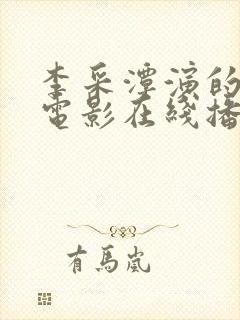 李采潭演的
電影在綫播
有馬嵐